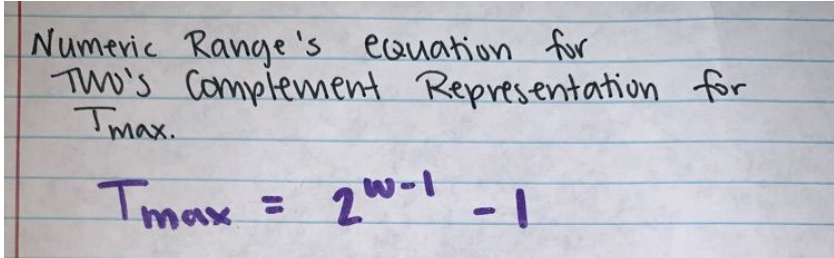 Numeric Range's equation for
Two's Complement Representation for
Tmax.
Tmax = 2^w-1 - 1